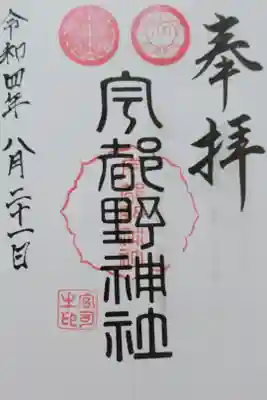 奉拝
宇都野神社
令和四年八月二十一日